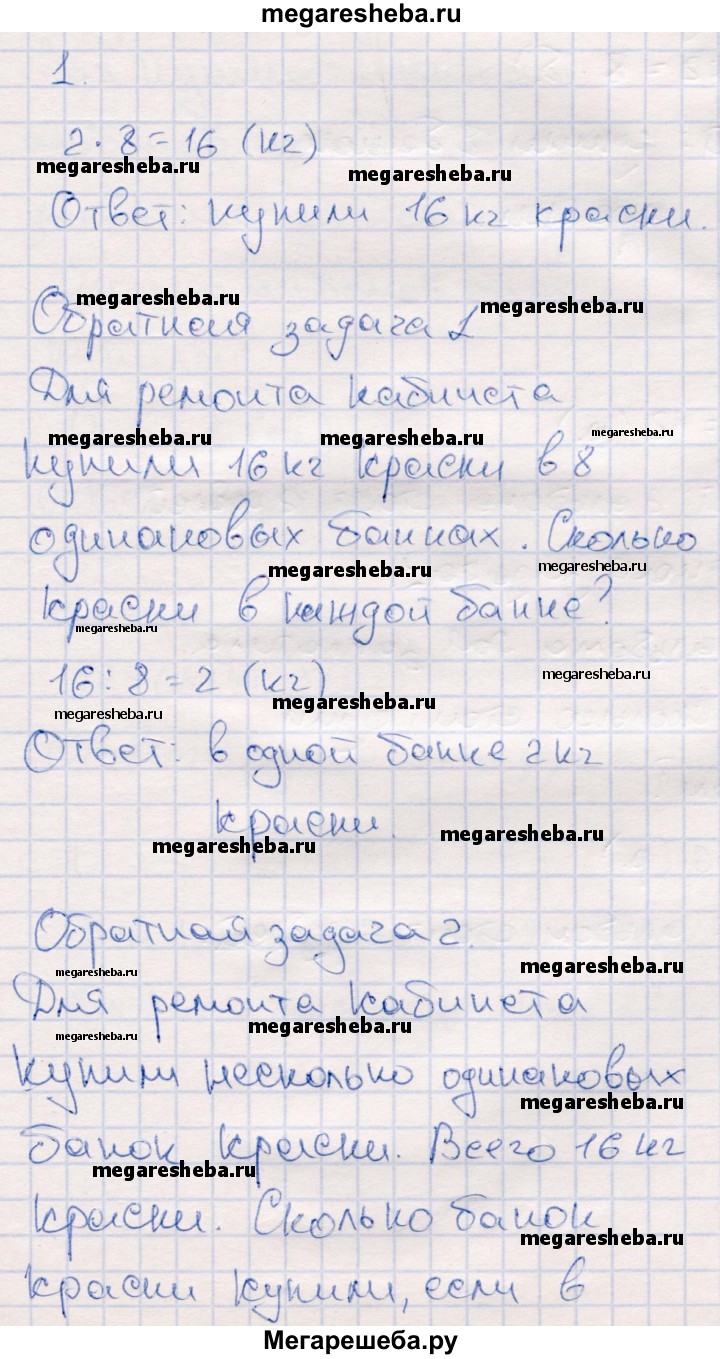 megaresheba.ru
1.
2 · 8 = 16 (кг)
megaresheba.ru
megaresheba.ru
Ответ: купили 16 кг краски.
megaresheba.ru
megaresheba.ru
Обратная задача 1
Для ремонта кабинета
megaresheba.ru
megaresheba.ru
megaresheba.ru
купили 16 кг краски в 8
одинаковых банках. Сколько
megaresheba.ru
megaresheba.ru
краски в каждой банке?
megaresheba.ru
16 : 8 = 2 (кг)
megaresheba.ru
megaresheba.ru
megaresheba.ru
Ответ: в одной банке 2 кг
краски.
megaresheba.ru
megaresheba.ru
Обратная задача 2.
megaresheba.ru
megaresheba.ru
Для ремонта кабинета
megaresheba.ru
megaresheba.ru
купили несколько одинаковых
megaresheba.ru
банок краски. Всего 16 кг
megaresheba.ru
краски. Сколько банок
megaresheba.ru
краски купили, если в
Мегарешеба.ру